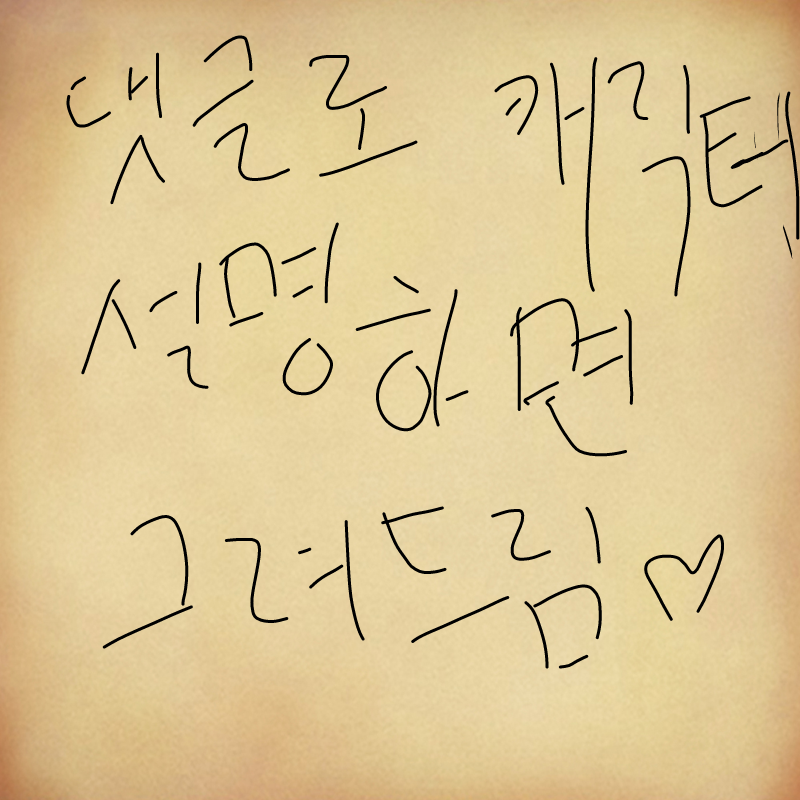 댓글로 캐릭터
설명하면
그려드림♡